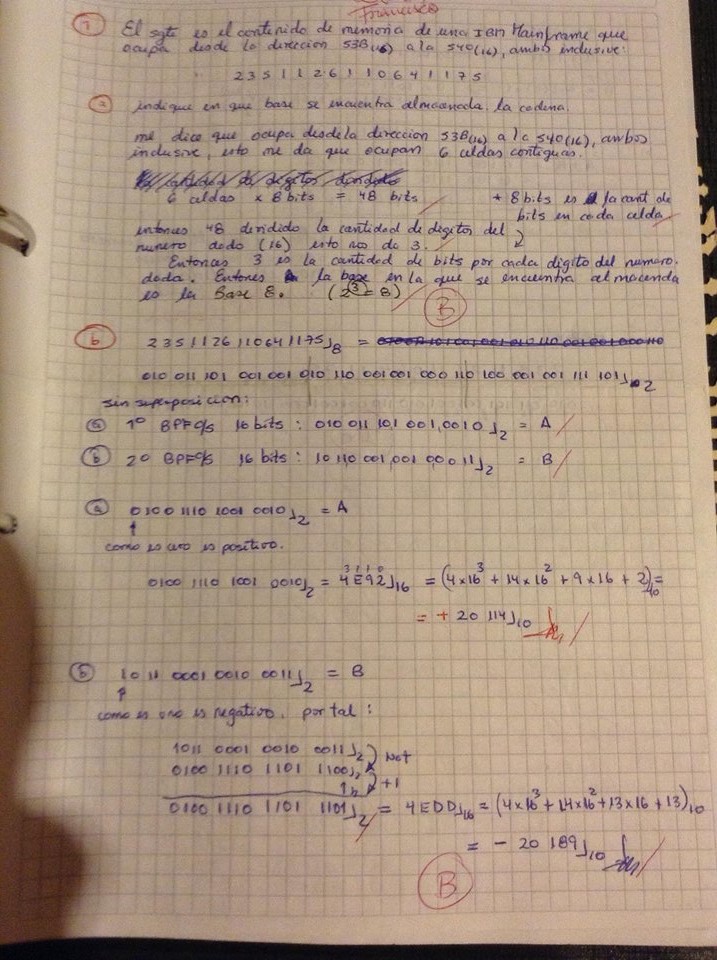 Francisco
1 El sgte es el contenido de memoria de una IBM Mainframe que
ocupa desde la direccion 53B(16) a la 540(16), ambos inclusive:
2351126110641175
a indique en que base se encuentra almacenada la cadena.
me dice que ocupa desde la direccion 53B(16) a la 540(16), ambos
inclusive, esto me da que ocupan 6 celdas contiguas.
6 celdas x 8 bits = 48 bits
* 8 bits es la cant de
bits en cada celda
entonces 48 dividido la cantidad de digitos del
numero dado (16) esto nos da 3.
Entonces 3 es la cantidad de bits por cada digito del numero
dado. Entonces la base en la que se encuentra almacenda
es la Base 8. (2^3 = 8)
B
b 2351126110641175]8 =
010 011 101 001 001 010 110 001 001 000 110 100 001 001 111 101]2
sin superposicion:
a 1º BPFc/s 16 bits: 010 011 101 001,0010]2 = A
b 2º BPFc/s 16 bits: 10 110 001,001 000 11]2 = B
a 0100 1110 1001 0010]2 = A
como es cero es positivo.
3 1 1 0
0100 1110 1001 0010]2 = 4E92]16 = (4x16^3 + 14x16^2 + 9x16 + 2)10 =
= + 20 114]10
b 1011 0001 0010 0011]2 = B
como es uno es negativo. por tal:
1011 0001 0010 0011]2
Not
0100 1110 1101 1100]2
1]2
+1
0100 1110 1101 1101]2 = 4EDD]16 = (4x16^3 + 14x16^2 + 13x16 + 13)10
= - 20 189]10
B